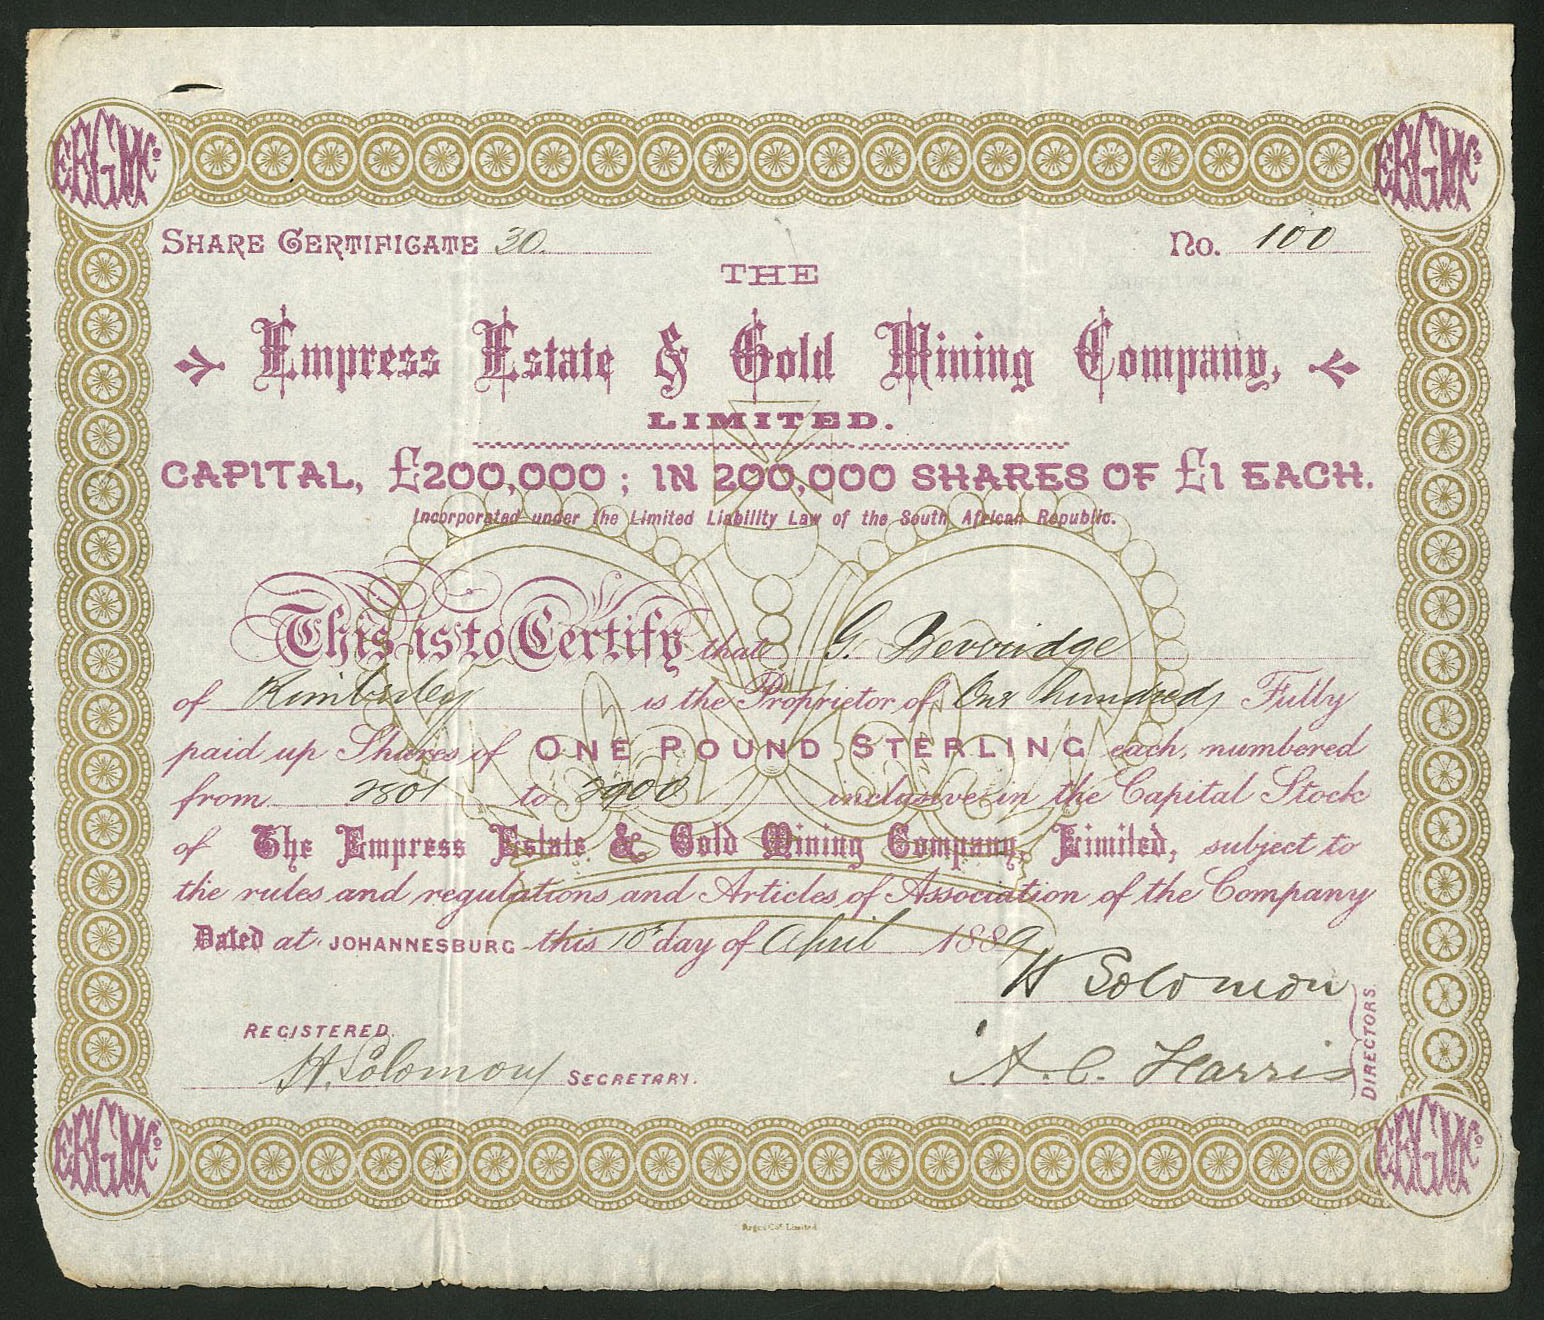 SHARE CERTIFICATE 30. No. 100
THE
Empress Estate & Gold Mining Company,
LIMITED.
CAPITAL, £200,000; IN 200,000 SHARES OF £1 EACH.
Incorporated under the Limited Liability Law of the South African Republic.
This is to Certify that G. Bevveridge
of Kimberley is the Proprietor of One hundred Fully
paid up Shares of ONE POUND STERLING each, numbered
from 2801 to 2900 inclusive in the Capital Stock
of The Empress Estate & Gold Mining Company, Limited, subject to
the rules and regulations and Articles of Association of the Company
Dated at JOHANNESBURG this 10th day of April 1889
H Solomon
REGISTERED.
H. Solomon SECRETARY.
A. C. Harris
DIRECTORS.
Argus Co. Limited